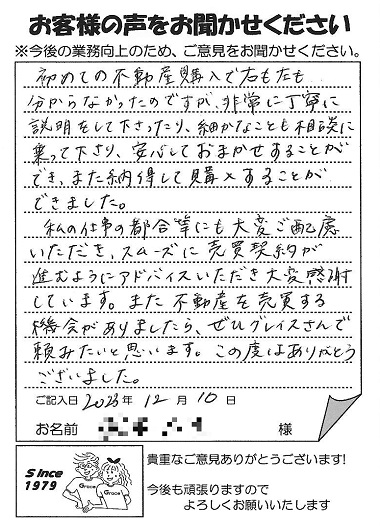 お客様の声をお聞かせください
※今後の業務向上のため、ご意見をお聞かせください。
初めての不動産購入で右も左も
分からなかったのですが、非常に丁寧に
説明をして下さったり、細かなことも相談に
乗って下さり、安心しておまかせすることが
でき、また納得して購入することが
できました。
私の仕事の都合等にも大変ご配慮
いただき、スムーズに売買契約が
進むようにアドバイスいただき大変感謝
しています。また不動産を売買する
機会がありましたら、ぜひグレイスさんで
頼みたいと思います。この度はありがとう
ございました。
ご記入日 2023年 12月 10日
お名前 様
Since
1979
Grace
Grace
貴重なご意見ありがとうございます!
今後も頑張りますので
よろしくお願いいたします